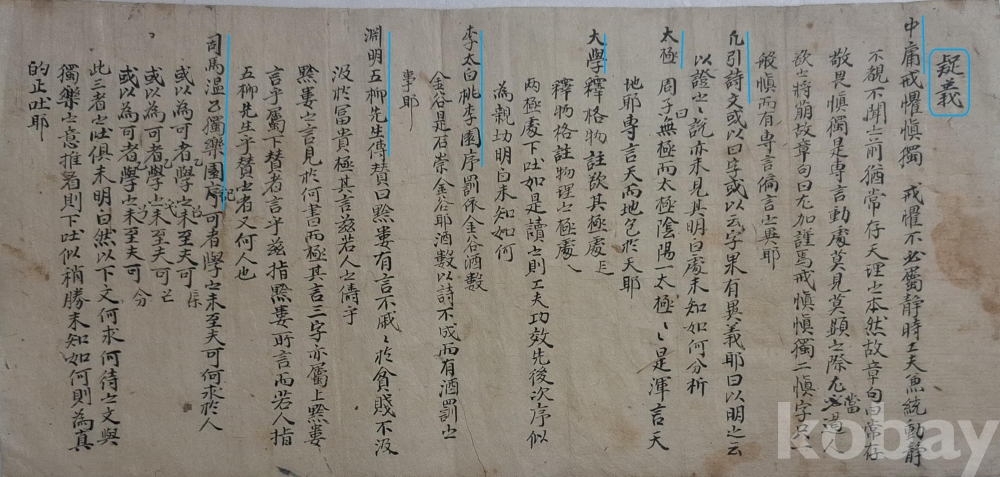 疑義
中庸戒懼愼獨 戒懼不必屬靜時工夫魚統動靜
不覩不聞之前猶常存天理之本然故章句曰常存
敬畏愼獨是專言動處莫見莫顯之際尤當過人
欲之將萌故章句曰尤加謹焉戒愼愼獨二愼字只
般愼而有專言偏言之異耶
凡引詩文或以曰字或以云字果有異義耶曰以明之云
以證之之說亦未見其明白處未知如何分析
太極 周子曰無極而太極陰陽一太極〻是渾言天
地耶專言天而地包於天耶
大學釋格物註欲其極處
釋物格註物理之極處
兩極處下吐如是讀之則工夫功效先後次序似
爲親切明白未知如何
李太白桃李園序罰依金谷酒數
金谷是石崇金谷耶酒數以詩不成而有酒罰之
事耶
淵明五柳先生傳贊曰黔婁有言不戚〻於貧賤不汲
汲於冨貴極其言玆若人之儔乎
黔婁之言見於何書而極其言三字亦屬上黔婁
言乎屬下贊者言乎玆指黔婁所言而若人指
五柳先生乎贊之者又何人也
司馬溫公獨樂園記可者學之未至夫可何求於人
或以爲可者學之未至夫可
或以爲可者學之未至夫可
或以爲可者學之未至夫可
此三者之吐俱未明白然以下文何求何待之文與
獨樂之意推看則下吐似稍勝未知如何則爲眞
的正吐耶
kobay